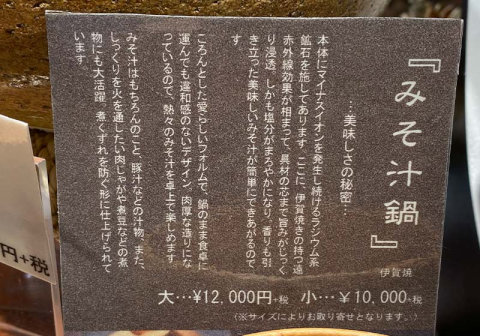 『みそ汁鍋』
伊賀焼
…美味しさの秘密…
本体にマイナスイオンを発生し続けるラジウム系
鉱石を施してあります。ここに、伊賀焼きの持つ遠
赤外線効果が相まって、具材の芯まで旨みがじっく
り浸透、しかも塩分がまろやかになり、香りも引
き立った美味しいみそ汁が簡単にできあがるので
す。
ころんとした愛らしいフォルムで、鍋のまま食卓に
運んでも違和感のないデザイン。肉厚な造りにな
っているので、熱々のみそ汁を卓上で楽しめます。
みそ汁はもちろんのこと、豚汁などの汁物、また、
しっくりを火を通したい肉じゃがや煮豆などの煮
物にも大活躍。煮くずれを防ぐ形に仕上げられて
います。
大…¥12,000円+税 小…¥10,000+税
(※サイズによりお取り寄せとなります。)
円+税